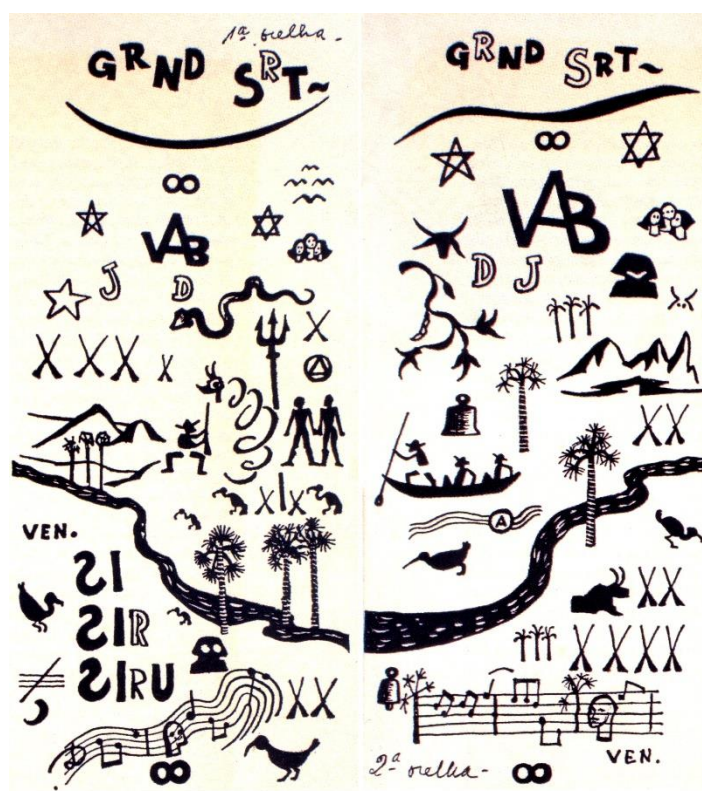 1ª orelha -
GRND SRT~
VAB
J D
X
X X X X
X I X
VEN.
SI
SIR
SIRU
X X
GRND SRT~
VAB
D J
X X
A
X X
X X X X
VEN.
2ª orelha -